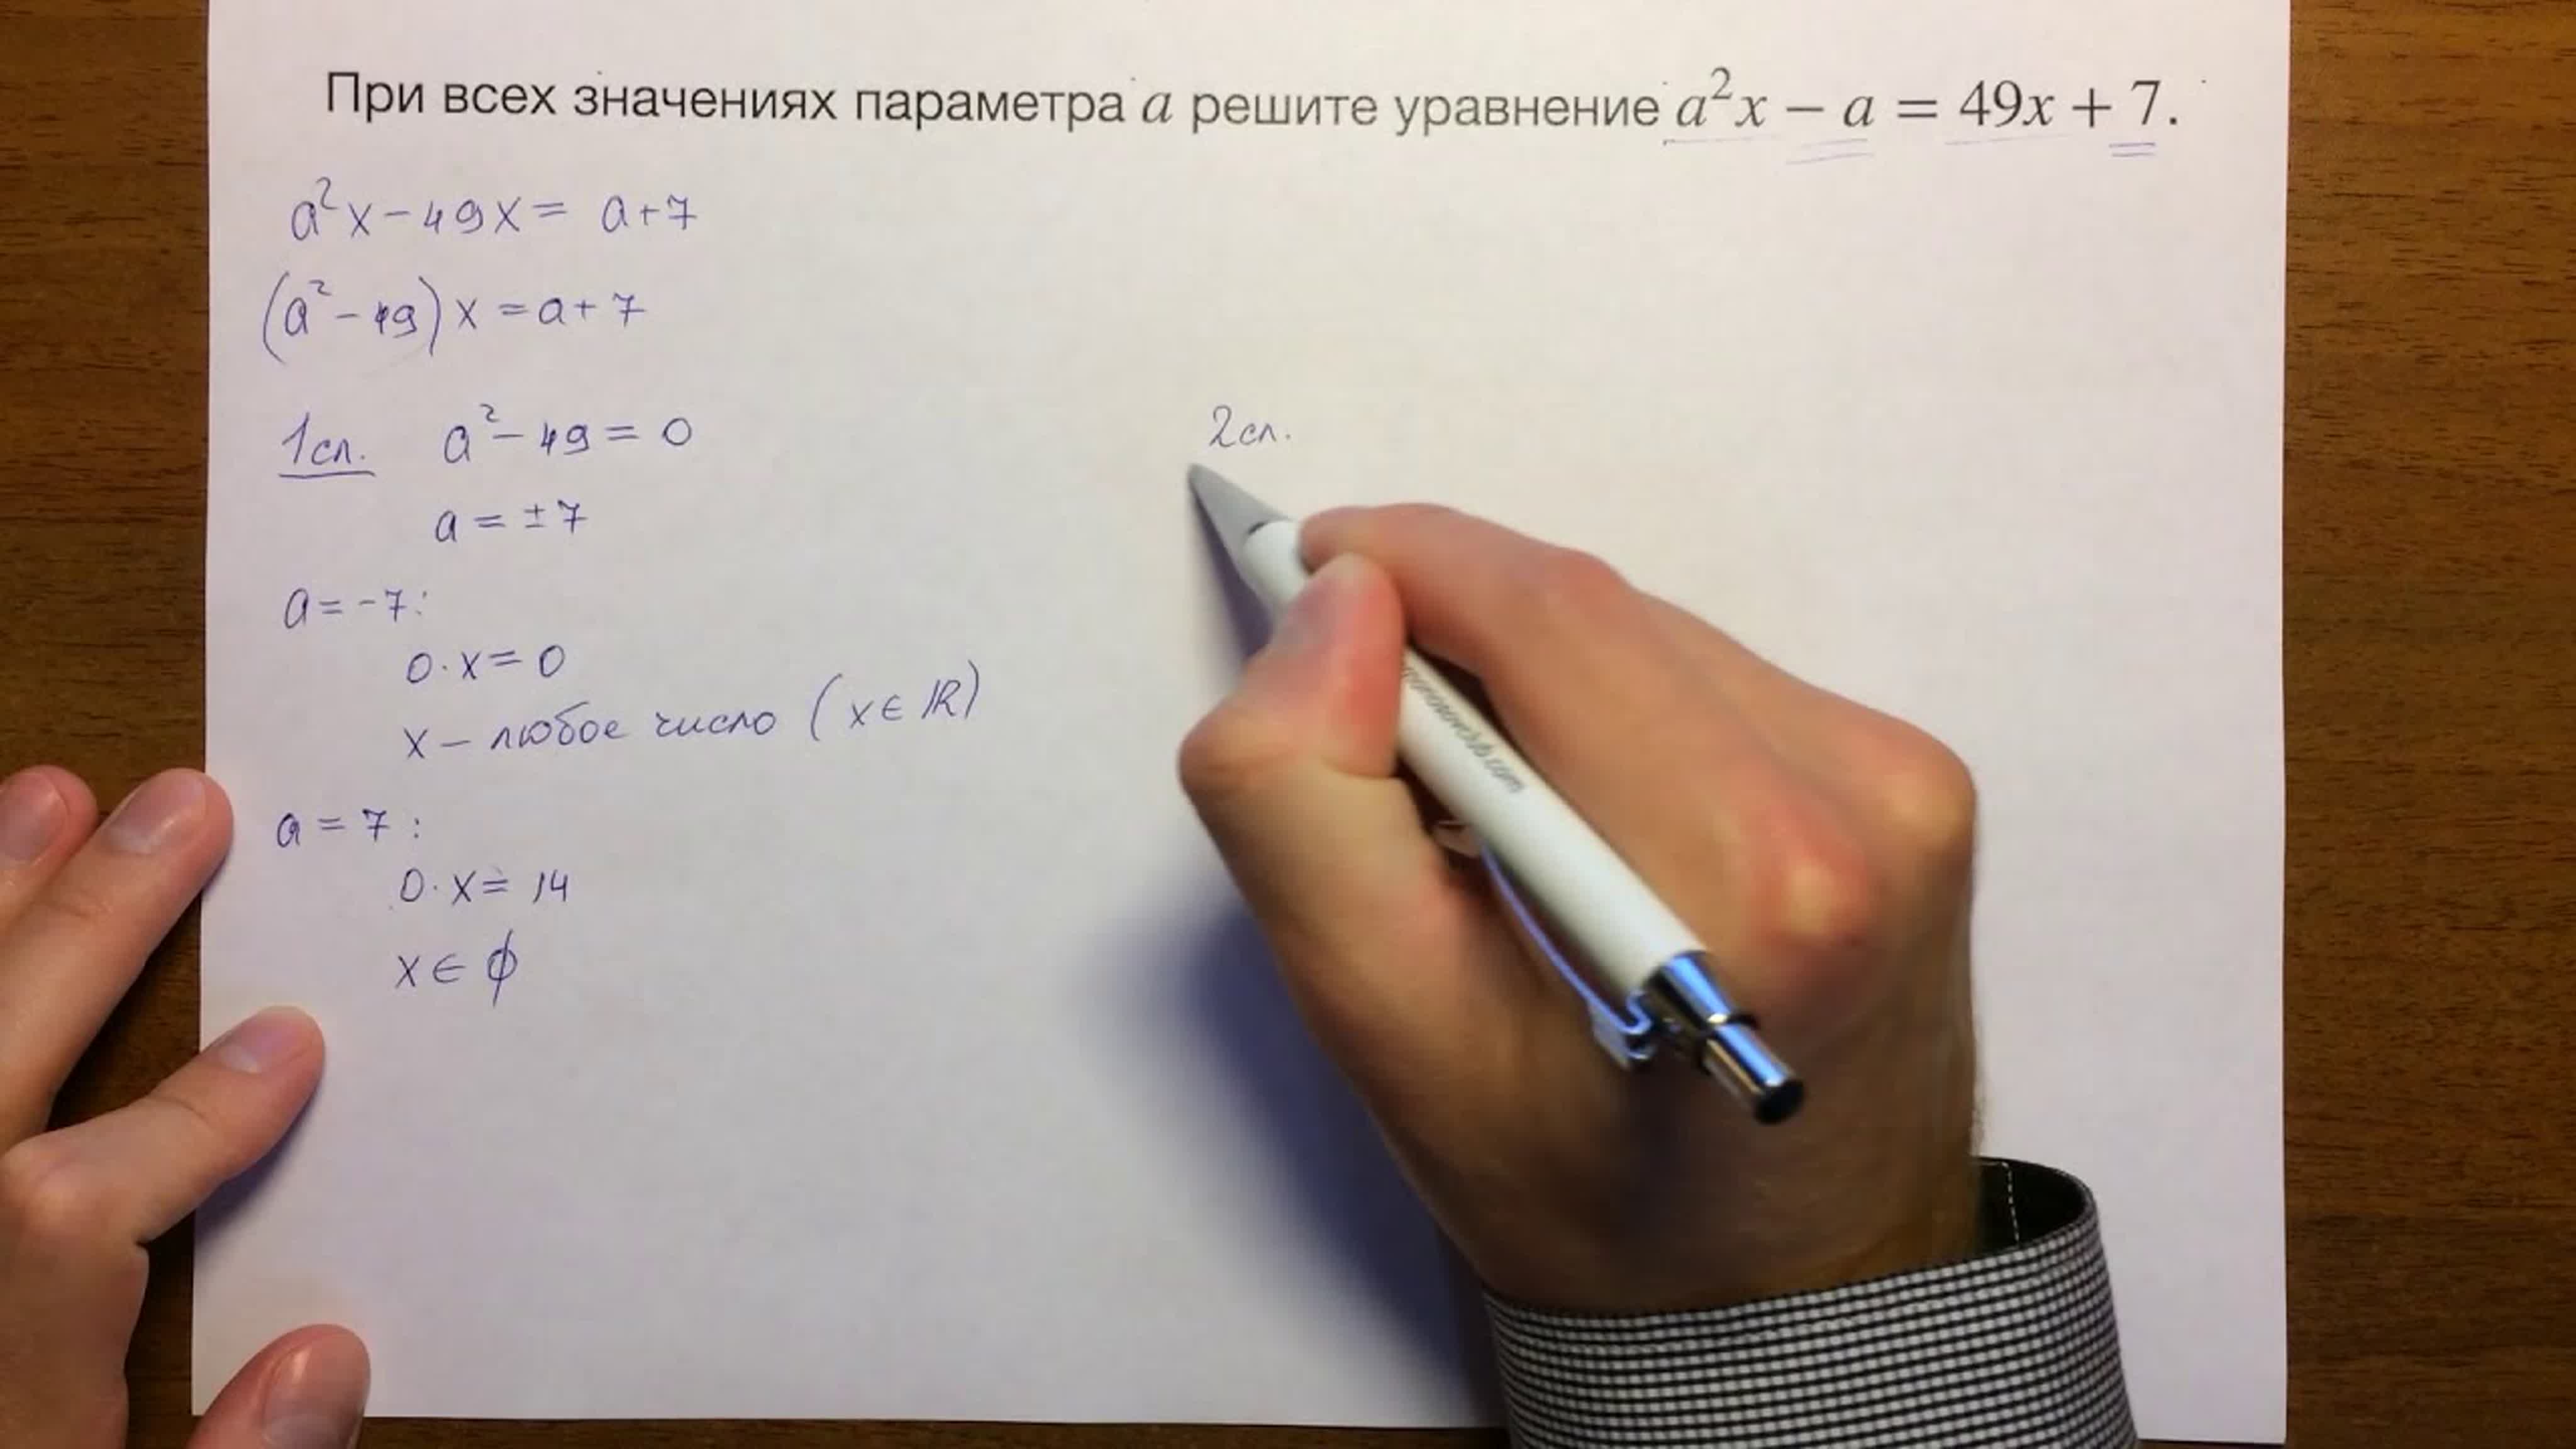 При всех значениях параметра a решите уравнение a²x − a = 49x + 7.
a²x − 49x = a + 7
(a² − 49) x = a + 7
1сл. a² − 49 = 0
a = ±7
a = −7:
0·x = 0
x − любое число (x ∈ ℝ)
a = 7:
0·x = 14
x ∈ ϕ
2сл.